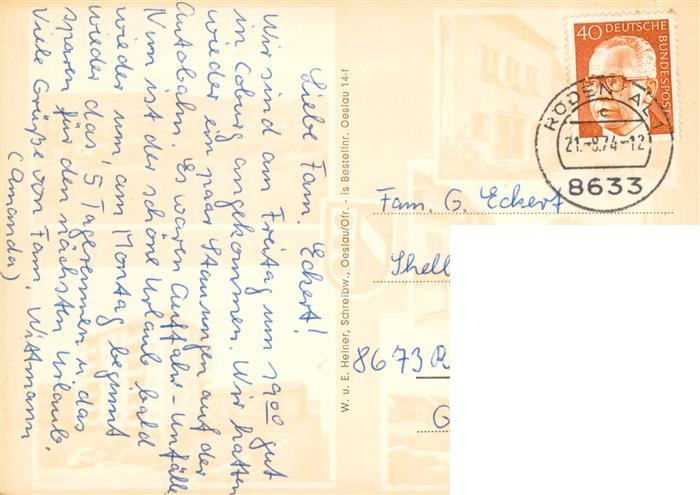 Liebe Fam. Eckert!
Wir sind am Freitag um 19 00 gut
in Coburg angekommen. Wir hatten
wieder ein paar Stauungen auf der
Autobahn. Es waren Auffahr-Unfälle
Nun ist der schöne Urlaub bald
wieder um am Montag beginnt
wieder das 5 Tagerennen u. das
sparen für den nächsten Urlaub.
Viele Grüße von Fam. Wittmann
(Amanda)
W. u. E. Heiner, Schreibw., Oeslau/Ofr. - is Bestellnr. Oeslau 14-f
40 DEUTSCHE
BUNDESPOST
RÖDENTAL 1
c
21.-8.74-12
8633
Fam. G. Eckert
Shell
8673 R
G